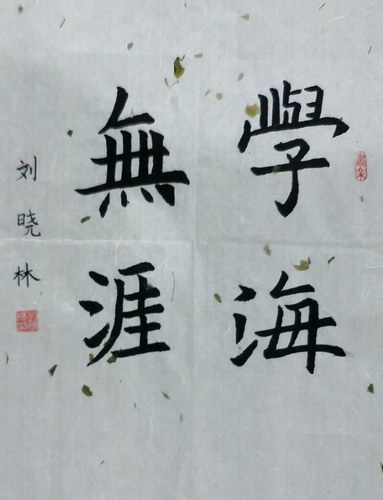 學海
無涯
刘晓林